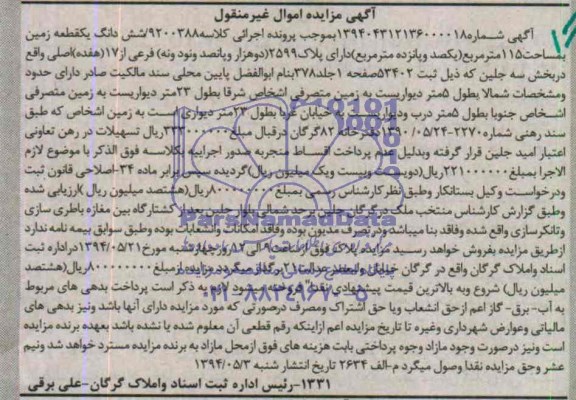 آگهی مزایده اموال غیرمنقول
آگهی شماره۱۳۹۴۰۴۳۱۲۱۳۶۰۰۰۰۱۸بموجب پرونده اجرائی کلاسه۹۲۰۰۳۸۸/شش دانگ یکقطعه زمین
بمساحت۱۱۵مترمربع(یکصد وپانزده مترمربع)بدارای پلاک۲۵۹۹(دوهزار وپانصد ونود ونه) فرعی از۱۷(هفده)اصلی واقع
دربخش سه جلین که ذیل ثبت ۵۳۴۰۲صفحه ۱جلد۳۷۸بنام ابوالفضل پایین محلی سند مالکیت صادر دارای حدود
ومشخصات شمالا بطول ۵متر دیواریست به زمین متصرفی اشخاص شرقا بطول ۲۳متر دیواریست به زمین متصرفی
اشخاص جنوبا بطول ۵متر درب ودیواریست به خیابان غربا بطول ۲۳متر دیواری است به زمین اشخاص که طبق
سند رهنی شماره۲۲۷۰-۱۳۹۰/۰۵/۲۴دفترخانه ۸۲گرگان درقبال مبلغ ۳۳۲۰۰۰۰۰۰ریال تسهیلات در رهن تعاونی
اعتبار امید جلین قرار گرفته وبدلیل عدم پرداخت اقساط منجربه صدور اجراییه بکلاسه فوق الذکر با موضوع لازم
الاجرا بمبلغ۲۲۱۰۰۰۰۰۰ریال(دویست وبیست ویک میلیون ریال)گردیده سپس برابر ماده ۳۴-اصلاحی قانون ثبت
ودرخواست وکیل بستانکار وطبق نظر کارشناس رسمی بمبلغ۸۰۰۰۰۰۰۰۰ریال(هشتصد میلیون ریال )ارزیابی شده
وطبق گزارش کارشناس منتخب ملک درگرگان جلین وحد شمالی بلوار جلین بعداز کشتارگاه بین مغازه باطری سازی
وتانکرسازی واقع شده وفاقد بنا میباشد ودرتصرف مدیون بوده وفاقد امکانات وانشعابات بوده وطبق سوابق بیمه نامه ندارد
ازطریق مزایده بفروش خواهد رسید مزایده پلاک فوق ازساعت۹الی ۱۲روز چهارشنبه مورخ۱۳۹۴/۰۵/۲۱دراداره ثبت
اسناد واملاک گرگان واقع در گرگان خیابان ولیعصر عدالت۲۱برگزار میگردد مزایده از مبلغ۸۰۰۰۰۰۰۰۰ریال(هشتصد
میلیون ریال) شروع وبه بالاترین قیمت پیشنهادی نقدا فروخته میشود لازم به ذکر است پرداخت بدهی های مربوط
به آب- برق- گاز اعم ازحق انشعاب ویا حق اشتراک ومصرف درصورتی که مورد مزایده دارای آنها باشد ونیز بدهی های
مالیاتی وعوارض شهرداری وغیره تا تاریخ مزایده اعم ازاینکه رقم قطعی آن معلوم شده یا نشده باشد بعهده برنده مزایده
است ونیز درصورت وجود مازاد وجوه پرداختی بابت هزینه های فوق ازمحل مازاد به برنده مزایده مسترد خواهد شد ونیم
عشر وحق مزایده نقدا وصول میگردد م-الف ۲۶۳۴ تاریخ انتشار شنبه ۱۳۹۴/۰۵/۳
۱۳۳۱-رئیس اداره ثبت اسناد واملاک گرگان-علی برقی
ParsNamadData
۰۲۱-۸۸۳۴۹۶۷۰-۵